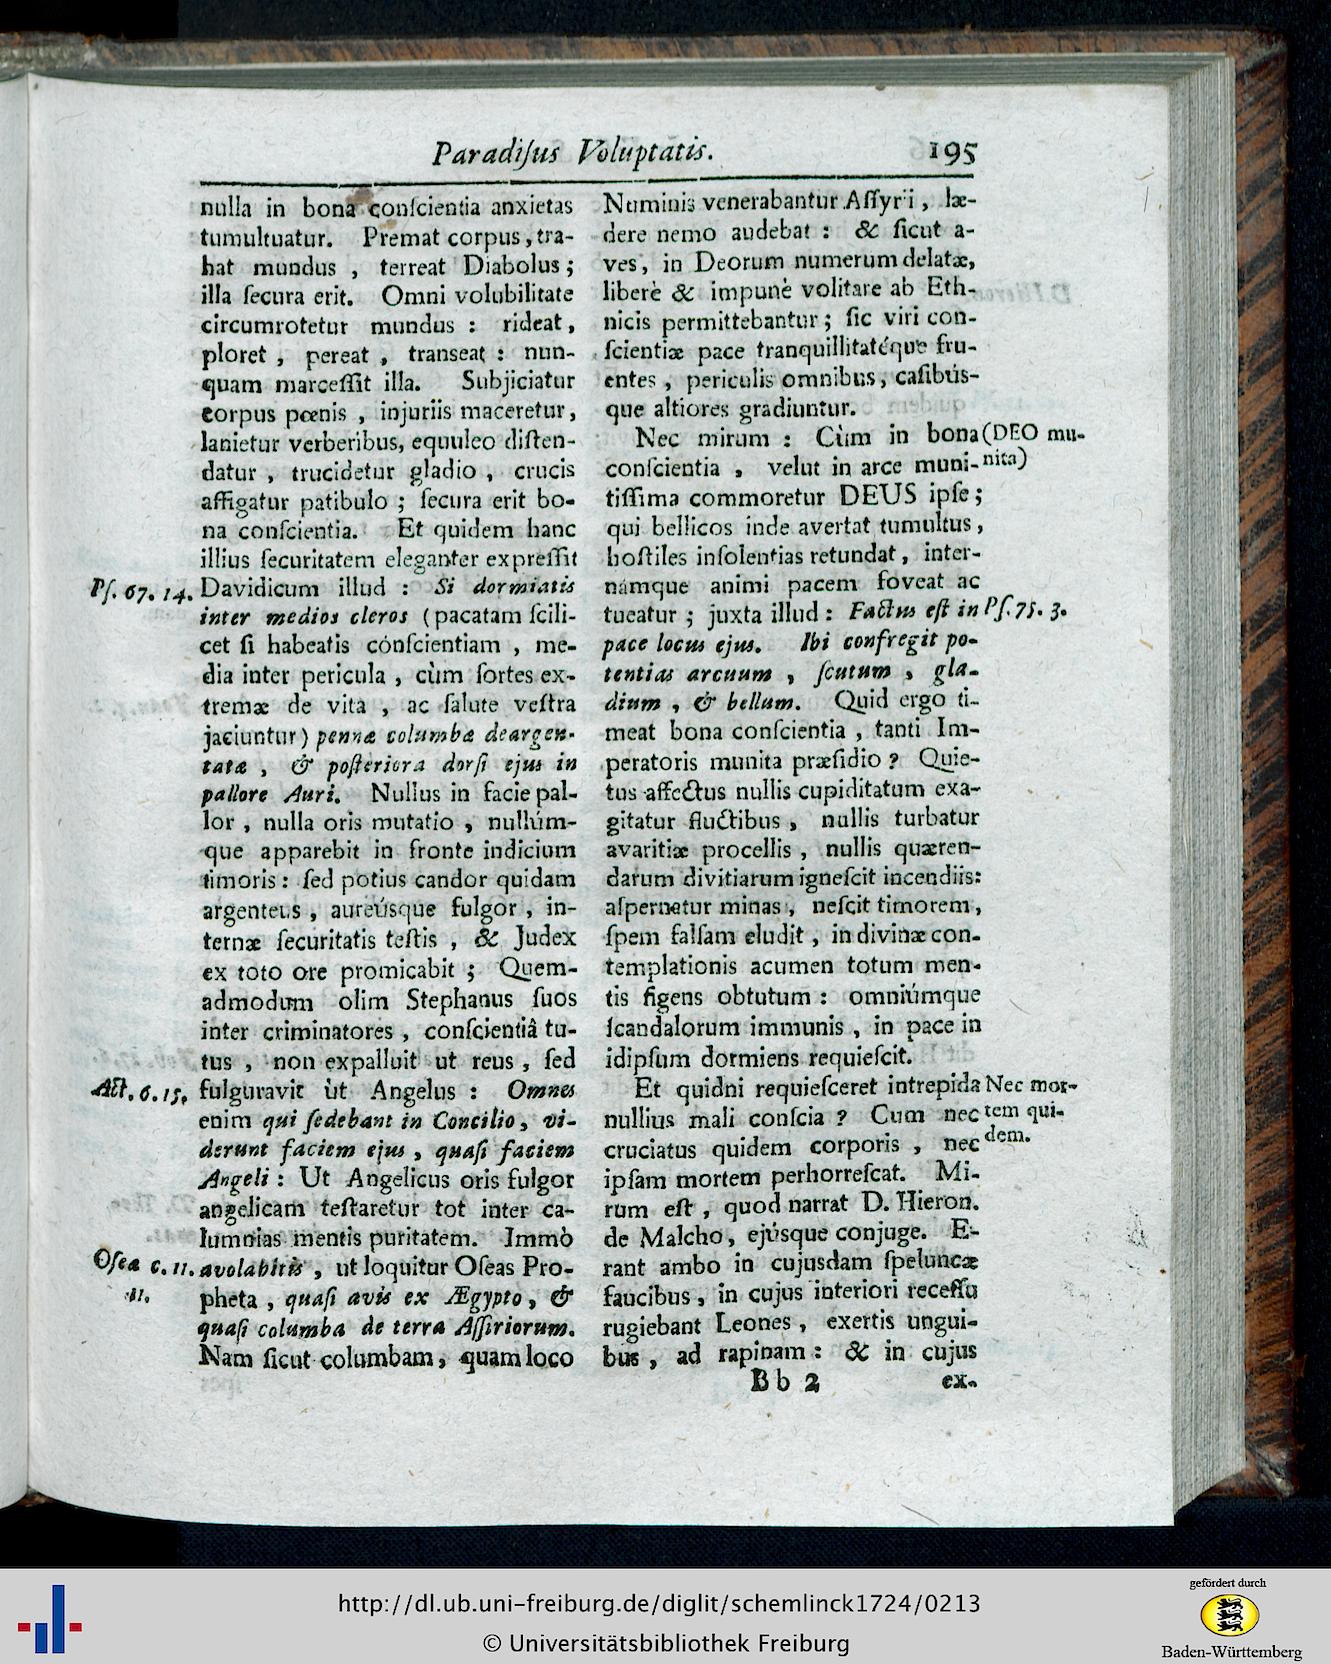 Paradiſus Voluptatis. 195
nulla in bona conſcientia anxietas
tumultuatur. Premat corpus, tra-
hat mundus , terreat Diabolus;
illa ſecura erit. Omni volubilitate
circumrotetur mundus : rideat,
ploret , pereat , transeat : nun-
quam marceſſit illa. Subjiciatur
corpus pœnis , injuriis maceretur,
lanietur verberibus, equuleo diſten-
datur , trucidetur gladio , crucis
affigatur patibulo ; ſecura erit bo-
na conſcientia. Et quidem hanc
illius ſecuritatem eleganter expreſſit
Pſ. 67. 14. Davidicum illud : Si dormiatis
inter medios cleros (pacatam ſcili-
cet ſi habeatis conſcientiam , me-
dia inter pericula , cùm ſortes ex-
tremæ de vita , ac ſalute veſtra
jaciuntur) pennæ columbæ deargen-
tatæ , & poſteriora dorſi ejus in
pallore Auri. Nullus in facie pal-
lor , nulla oris mutatio , nullúm-
que apparebit in fronte indicium
timoris : ſed potius candor quidam
argenteus , aureúsque fulgor , in-
ternæ ſecuritatis teſtis , & Judex
ex toto ore promicabit ; Quem-
admodum olim Stephanus ſuos
inter criminatores , conſcientiâ tu-
tus , non expalluit ut reus , ſed
Act. 6. 15. fulguravit ùt Angelus : Omnes
enim qui ſedebant in Concilio, vi-
derunt faciem ejus , quaſi faciem
Angeli : Ut Angelicus oris fulgor
angelicam teſtaretur tot inter ca-
lumnias mentis puritatem. Immò
Oſeæ c. 11. avolabitis , ut loquitur Oſeas Pro-
11. pheta , quaſi avis ex Ægypto, &
quaſi columba de terra Aſſiriorum.
Nam ſicut columbam, quam loco
Numinis venerabantur Aſſyrii , læ-
dere nemo audebat : & ſicut a-
ves, in Deorum numerum delatæ,
liberè & impunè volitare ab Eth-
nicis permittebantur ; ſic viri con-
ſcientiæ pace tranquillitatéque fru-
entes , periculis omnibus, caſibús-
que altiores gradiuntur.
Nec mirum : Cùm in bona (DEO mu-
conſcientia , velut in arce muni- nita)
tiſſima commoretur DEUS ipſe ;
qui bellicos inde avertat tumultus ,
hoſtiles inſolentias retundat , inter-
námque animi pacem foveat ac
tueatur ; juxta illud : Factus eſt in Pſ. 75. 3.
pace locus ejus. Ibi confregit po-
tentias arcuum , ſcutum , gla-
dium , & bellum. Quid ergo ti-
meat bona conſcientia , tanti Im-
peratoris munita præſidio ? Quie-
tus affectus nullis cupiditatum exa-
gitatur fluctibus , nullis turbatur
avaritiæ procellis , nullis quæren-
darum divitiarum igneſcit incendiis:
aſpernetur minas , neſcit timorem,
ſpem falſam eludit , in divinæ con-
templationis acumen totum men-
tis figens obtutum : omniúmque
ſcandalorum immunis , in pace in
idipſum dormiens requieſcit.
Et quidni requieſceret intrepida Nec mor-
nullius mali conſcia ? Cum nec tem qui-
cruciatus quidem corporis , nec dem.
ipſam mortem perhorreſcat. Mi-
rum eſt , quod narrat D. Hieron.
de Malcho, ejúsque conjuge. E-
rant ambo in cujusdam ſpeluncæ
faucibus , in cujus interiori receſſu
rugiebant Leones , exertis ungui-
bus , ad rapinam : & in cujus
B b 2 ex-
http://dl.ub.uni-freiburg.de/diglit/schemlinck1724/0213
© Universitätsbibliothek Freiburg
gefördert durch
Baden-Württemberg